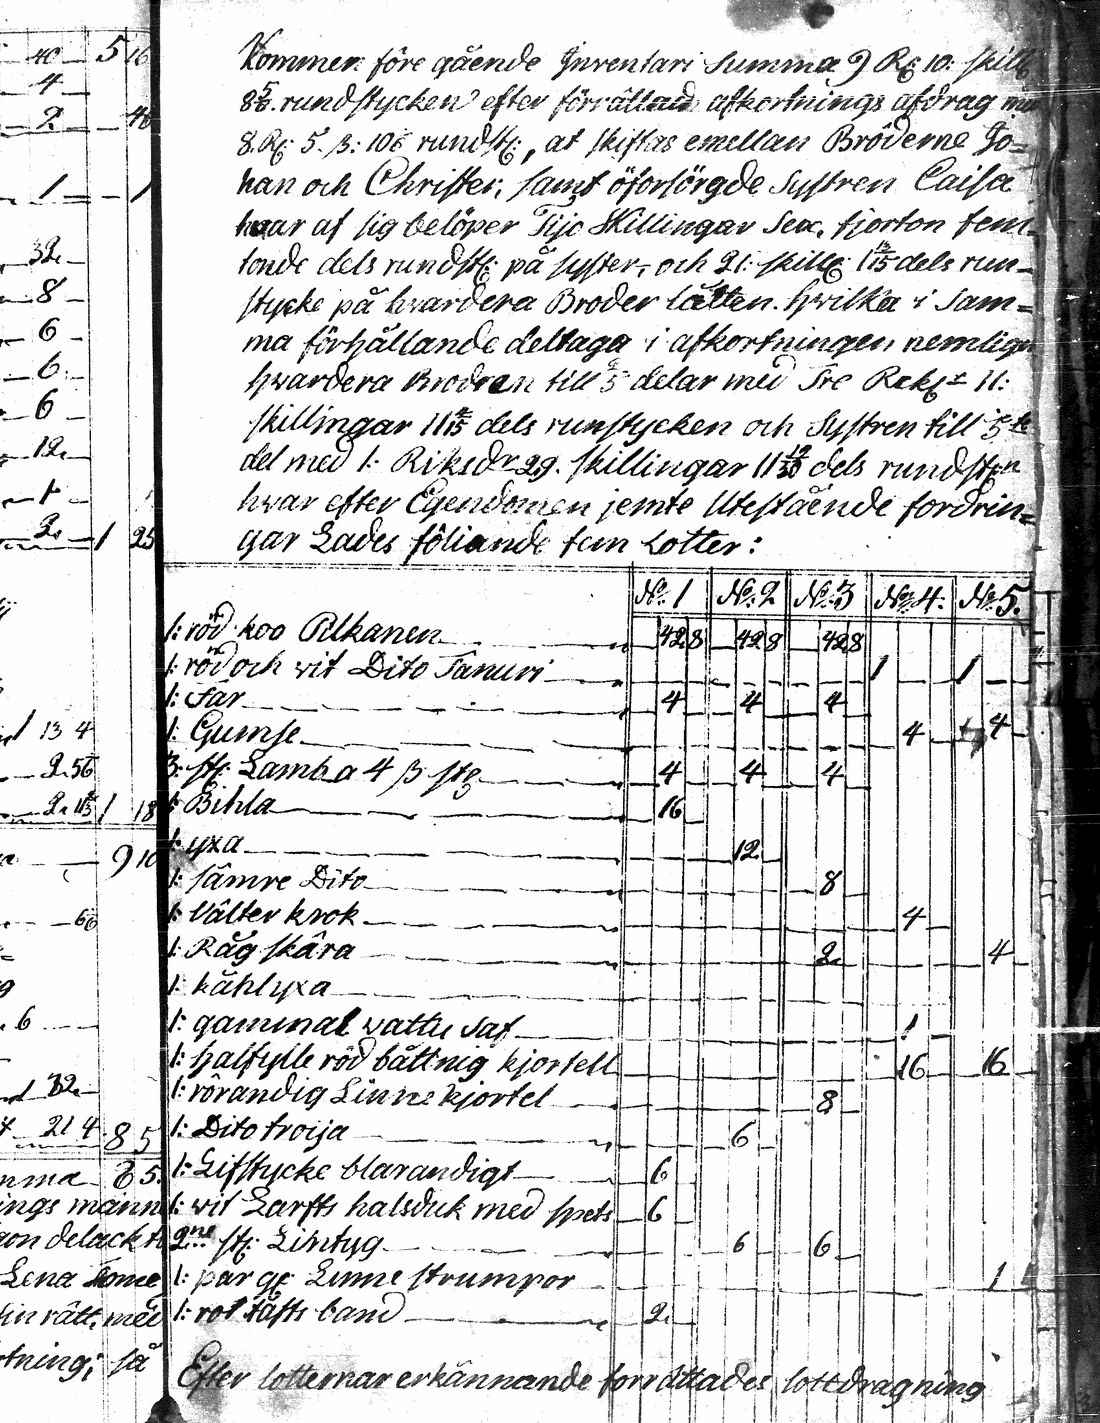 Kommer före gående Inventari Summa 9 Rg 10: skill
rundstycken efter förrättad afkortnings afdrag
8. Rg: 5. ß: rundst:, at skiftas emellan Bröderne Jo=
han och Christer, samt oförsörgde Systren Caisa
hvar af sig belöper Tijo Skillingar Sex, fjorton fem-
tonde dels rundst: på syster, och 21: skillg: 1 13/15 dels run-
stycke på hvardera Broder lätten. hvilka i Sam=
ma förhållande deltaga i afkortningen nemligen
hvardera Brodren till delar med Tre Rekg 11:
skillingar 11 dels runstycken och Systren till 5te
del med 1: Riksdr 29. skillingar 11 dels rundstn
hvar efter Egendomen jemte Utestående fordrin=
gar Lades föliande fem Lotter:
No: 1 No: 2 No: 3 No: 4: No: 5.
1: röd koo Pilkanen 42 8 42 8 42 8
1: röd och vit Dito Tanuri 1 1
1: Får 4 4 4
1: Gumse 4 4
3: st: Lamb a 4 ß stg 4 4 4
1: Bihla 16
1: yxa 12
1: sämre Dito 8
1: Välter krok 4
1: Råg skära 2 4
1: kåhlyxa
1: gammal vattu Saf 1
1: halfylle röd båttnig kjortell 16 16
1: rörandig Linne kjortel 8
1: Dito troija 6
1: Lifstycke blarandigt 6
1: vit Larfts halsduk med spets 6
2ne st: Lintyg 6 6
1: par gf Linne strumpor 1
1: rot tafts band 2
Efter lotternar erkännande forrättades lottdragning
40 5 16
4
2
1 1
32
8
6
6
6
12
1
2 1 25
1 13 4
2 1 18
9 10
6
32
21 4 8 5
mma 8 5.
ings männ
on delack
Lena
in rätt, med
tning; så